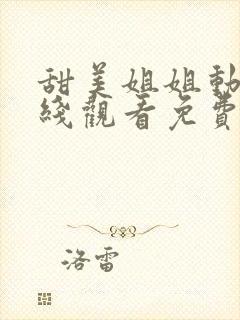 甜美姐姐動
綫觀看免費
洛雷